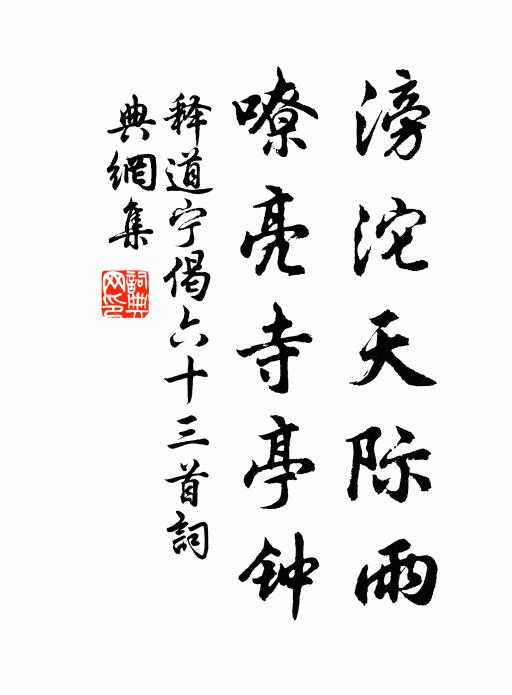 滂沱天际雨
嘹亮寺亭钟
释道宁偈六十三首詞
典網集
詞典
网印